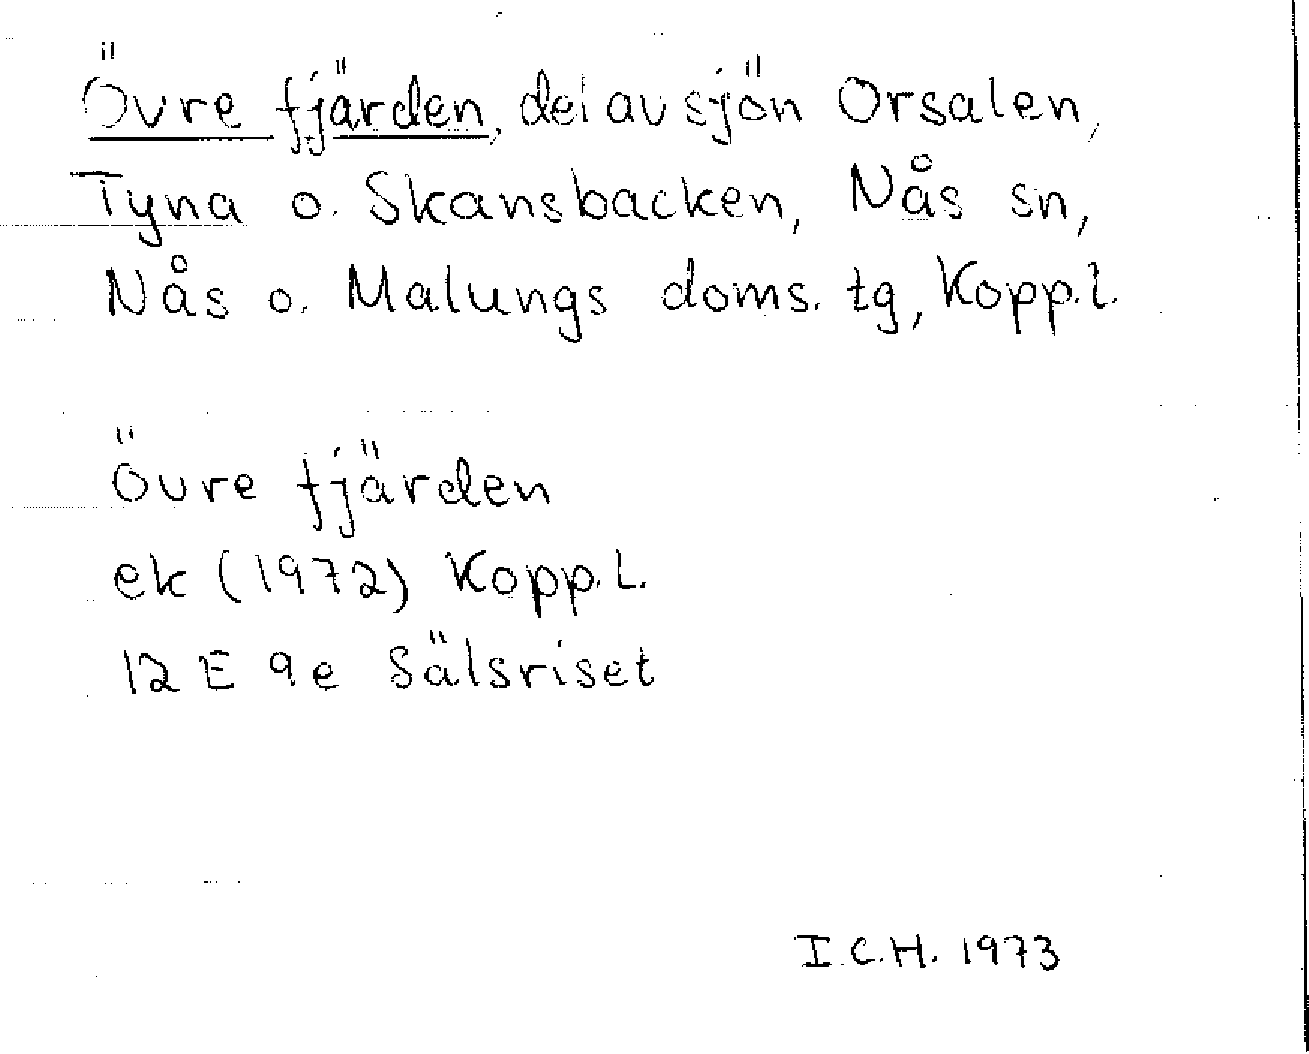 Övre fjärden, del av sjön Orsalen,
Tyna o. Skansbacken, Nås sn,
Nås o. Malungs doms. tg, Kopp.l.
Övre fjärden
ek (1972) Kopp.L.
12 E 9e Sälsriset
I.C.H. 1973